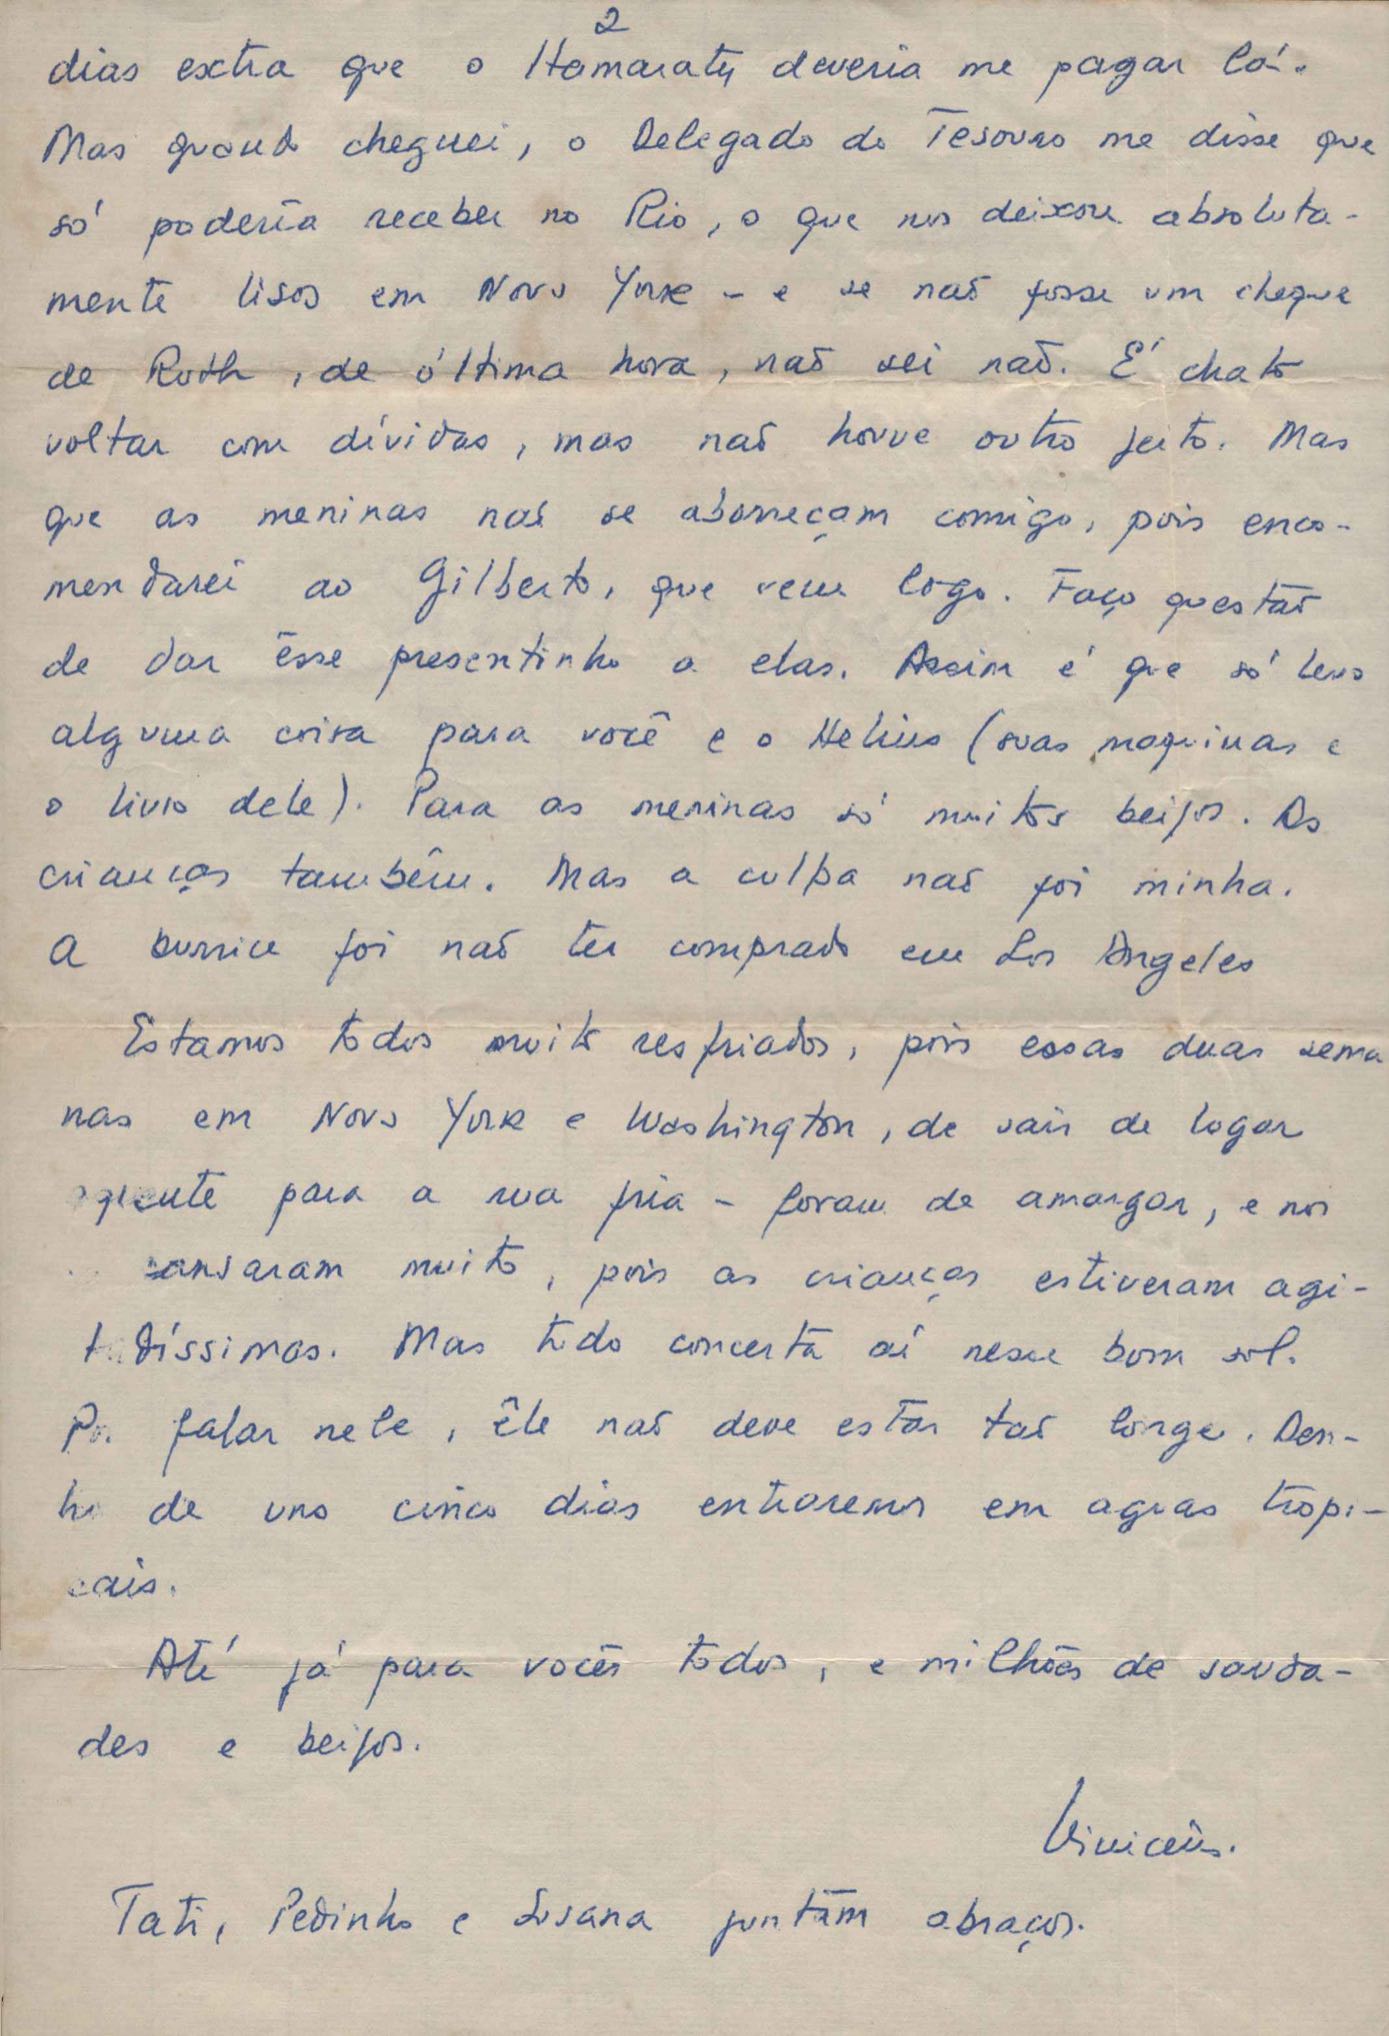 2
dias extra que o Itamaraty deveria me pagar lá.
Mas quando cheguei, o Delegado do Tesouro me disse que
só poderia receber no Rio, o que nos deixou absoluta-
mente lisos em Nova York - e se não fosse um cheque
de Ruth, de última hora, não sei não. É chato
voltar com dívidas, mas não houve outro jeito. Mas
que as meninas não se aborreçam comigo, pois enco-
mendarei ao Gilberto, que vem logo. Faço questão
de dar êsse presentinho a elas. Assim é que só levo
alguma coisa para você e o Helius (suas maquinas e
o livro dele). Para as meninas só muitos beijos. As
crianças também. Mas a culpa não foi minha.
A burrice foi não ter comprado em Los Angeles
Estamos todos muito resfriados, pois essas duas sema
nas em Nova York e Washington, de sair de logar
quente para a rua fria - foram de amargar, e nos
cansaram muito, pois as crianças estiveram agi-
tadíssimas. Mas tudo concerta aí nesse bom sol.
Por falar nele, êle não deve estar tão longe. Den-
tro de uns cinco dias entraremos em aguas tropi-
cais.
Até já para vocês todos, e milhões de sauda-
des e beijos.
Vinicius.
Tati, Pedrinho e Susana juntam abraços.